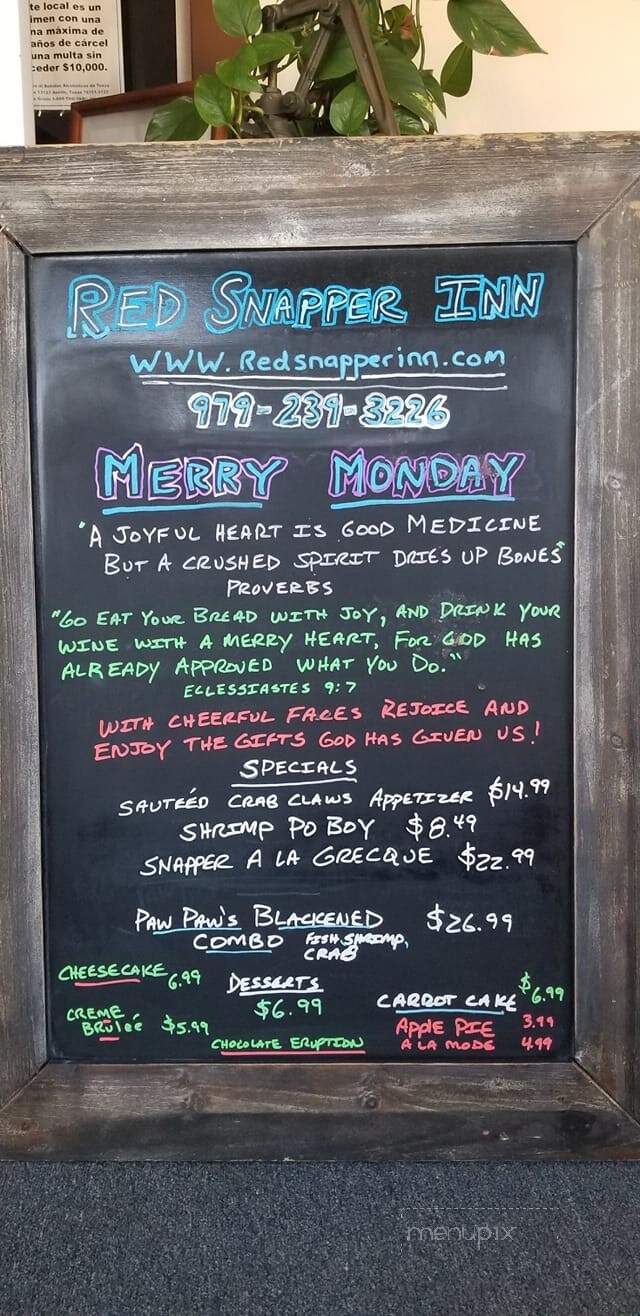 te local es un
imen con una
na máxima de
años de cárcel
una multa sin
ceder $10,000.
RED SNAPPER INN
WWW.Redsnapperinn.com
979-239-3226
MERRY MONDAY
"A JOYFUL HEART IS GOOD MEDICINE
BUT A CRUSHED SPIRIT DRIES UP BONES"
PROVERBS
"GO EAT YOUR BREAD WITH JOY, AND DRINK YOUR
WINE WITH A MERRY HEART, FOR GOD HAS
ALREADY APPROVED WHAT YOU DO."
ECLESSIASTES 9:7
WITH CHEERFUL FACES REJOICE AND
ENJOY THE GIFTS GOD HAS GIVEN US!
SPECIALS
SAUTEÉD CRAB CLAWS APPETIZER $14.99
SHRIMP PO BOY $8.49
SNAPPER A LA GRECQUE $22.99
PAW PAW'S BLACKENED $26.99
COMBO FISH, SHRIMP,
CRAB
CHEESECAKE 6.99
DESSERTS
$6.99
CARROT CAKE $6.99
CREME
BRULEÉ $5.99
APPLE PIE 3.99
A LA MODE 4.99
CHOCOLATE ERUPTION
menupix